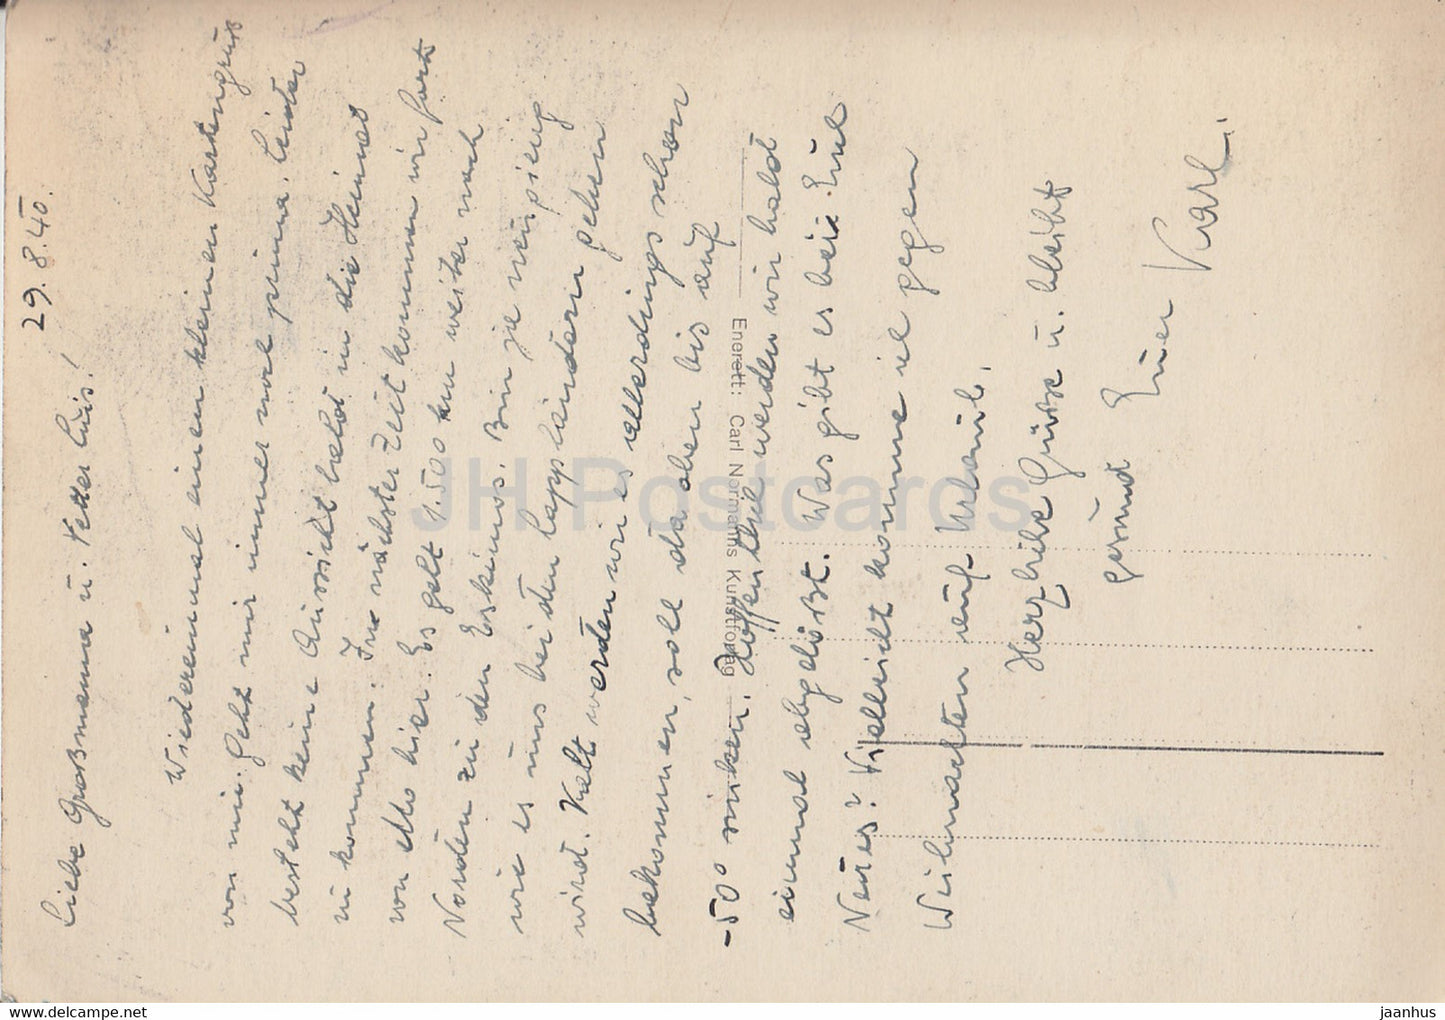 29.8.40.
Liebe Großmama u. Vetter Luis!
Wiedereinmal einen kleinen Kartengruß
von mir. Geht mir immer noch prima. Leider
besteht keine Aussicht bald in die Heimat
zu kommen. In nächster Zeit kommen wir fort
von hier. Es geht 1.500 km weiter nach
Norden zu den Eskimos. Bin ja neugierig
wie es uns bei den Lappländern gehen
wird. Kalt werden wir es allerdings schon
bekommen, soll da oben bis auf
-50° sinken. Hoffentlich werden wir bald
einmal abgelöst. Was gibt es bei Euch
Neues? Vielleicht komme ich gegen
Weihnachten auf Urlaub.
Herzliche Grüsse u. bleibt
gesund Euer Karl.
Enerett: Carl Normanns Kunstforlag
JH Postcards
www.delcampe.net
jaanhus